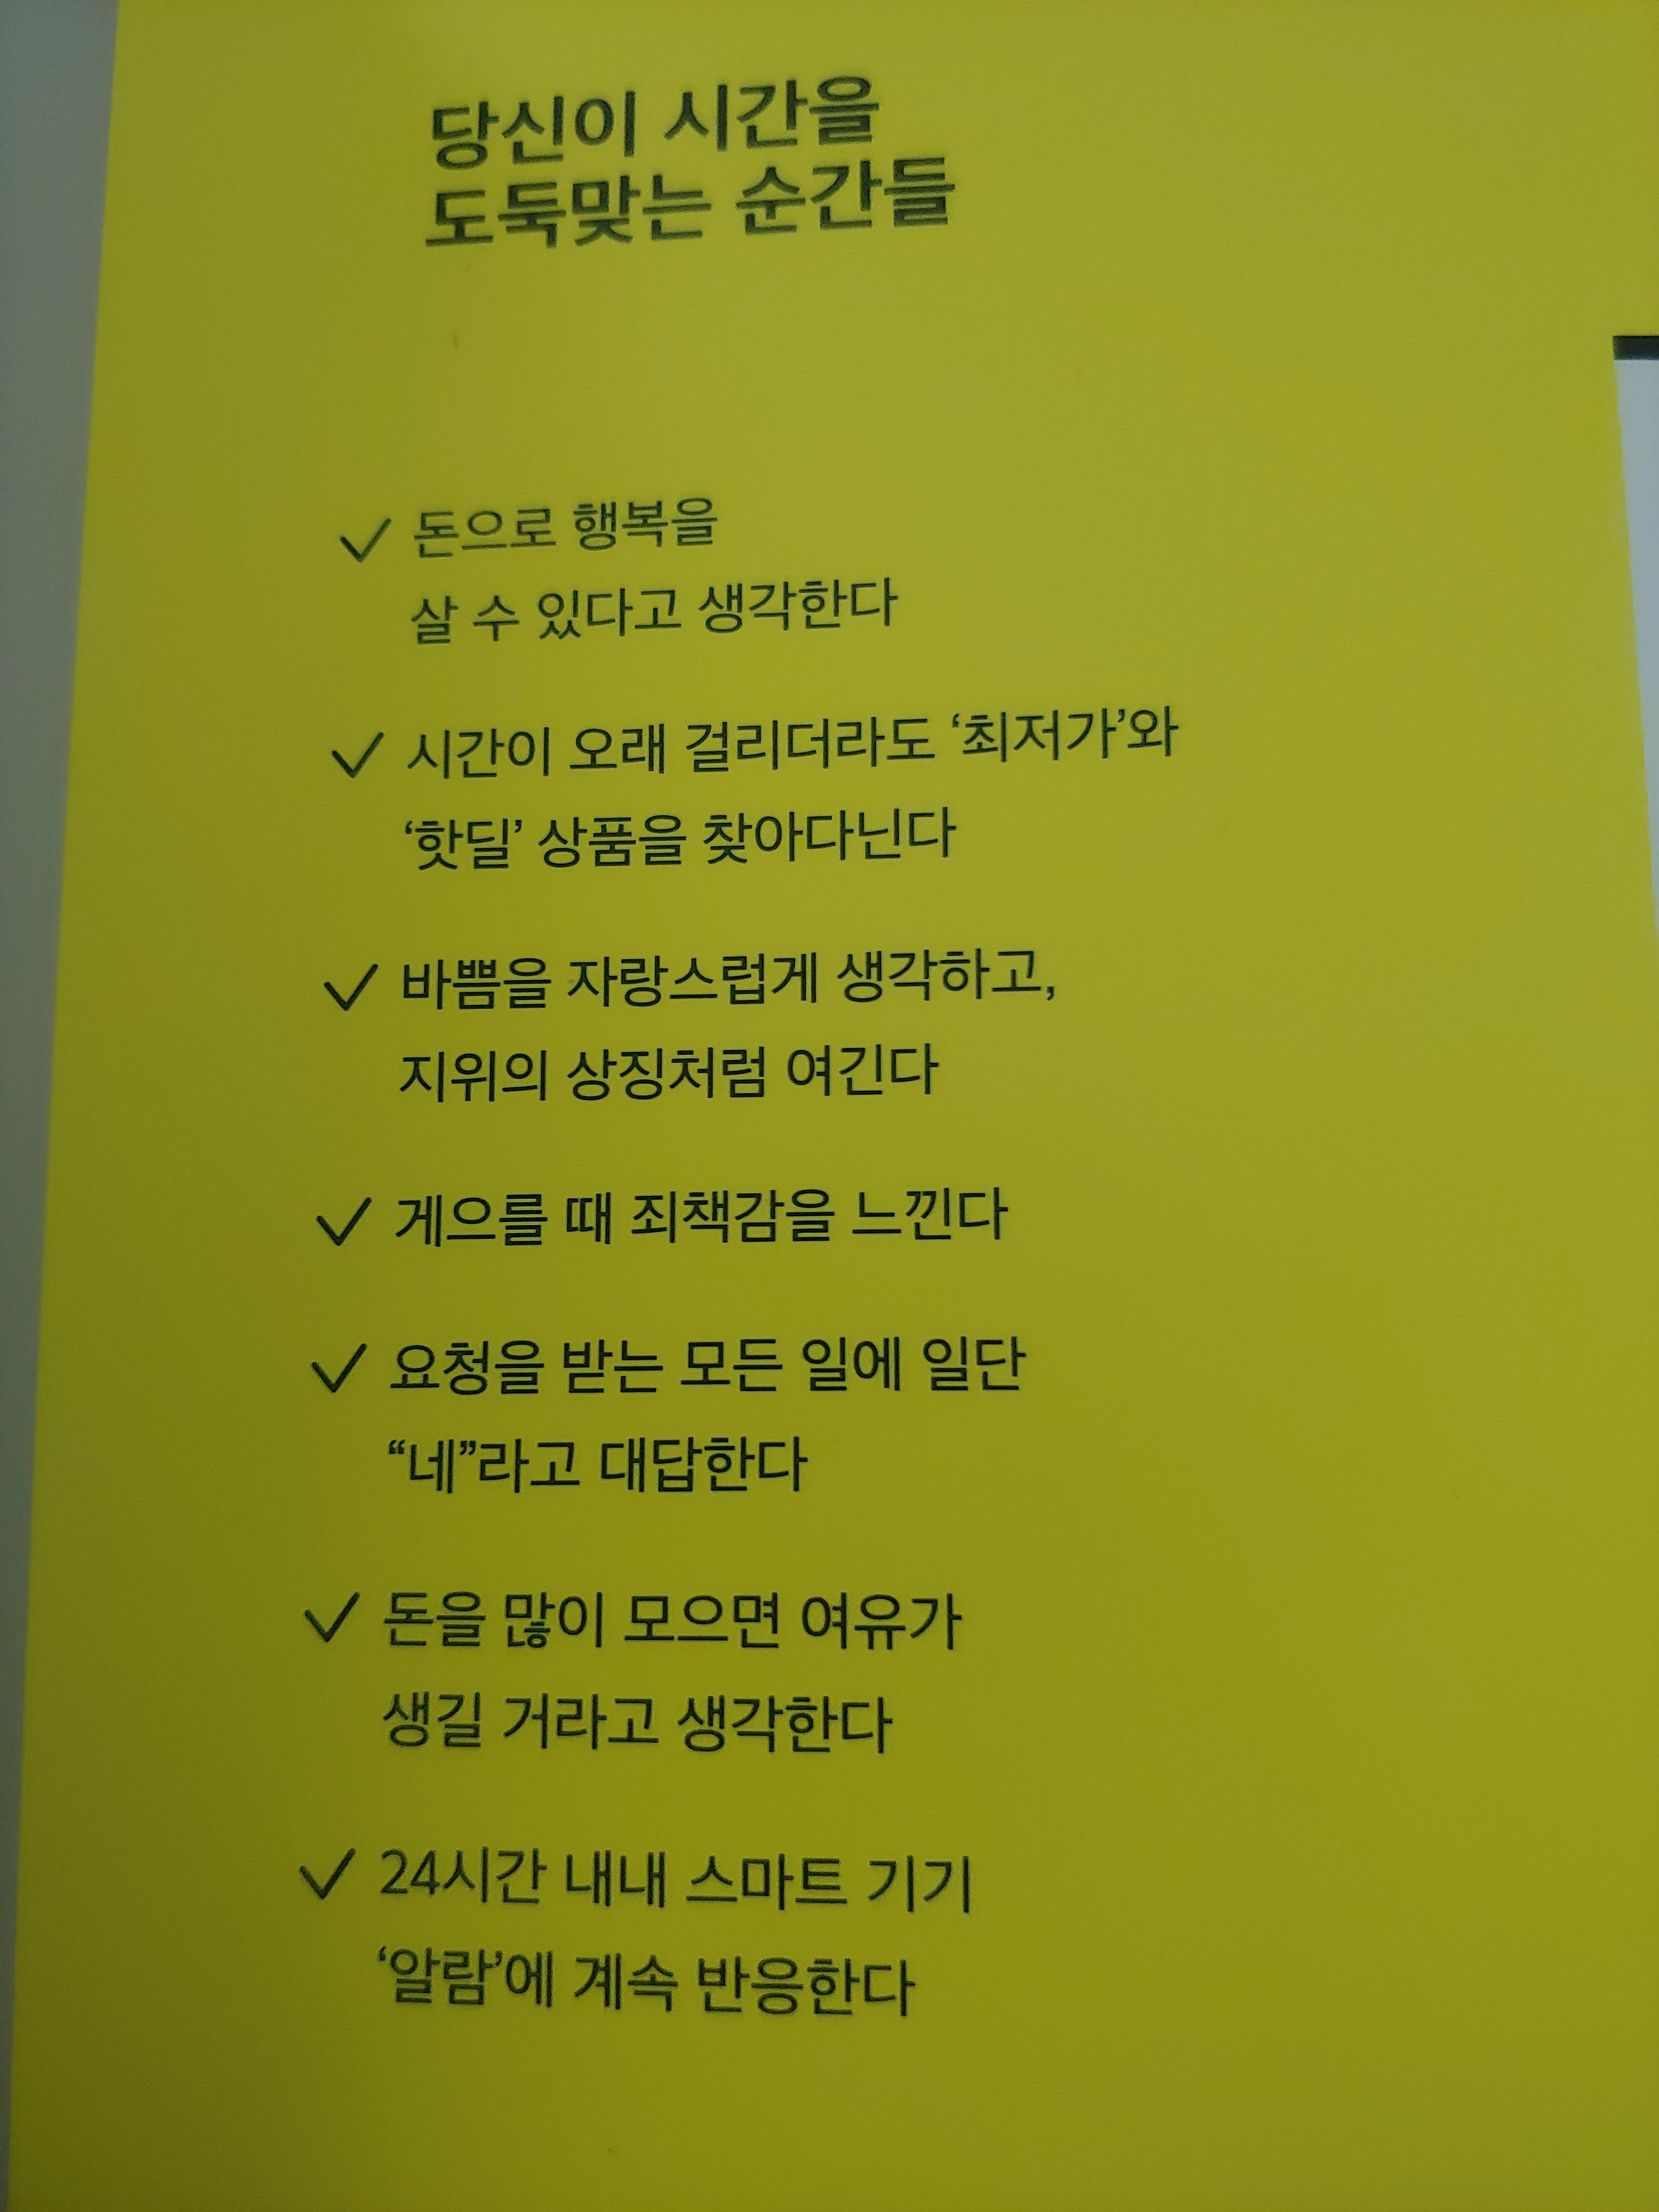 당신이 시간을
도둑맞는 순간들
✓ 돈으로 행복을
살 수 있다고 생각한다
✓ 시간이 오래 걸리더라도 ‘최저가’와
‘핫딜’ 상품을 찾아다닌다
✓ 바쁨을 자랑스럽게 생각하고,
지위의 상징처럼 여긴다
✓ 게으를 때 죄책감을 느낀다
✓ 요청을 받는 모든 일에 일단
“네”라고 대답한다
✓ 돈을 많이 모으면 여유가
생길 거라고 생각한다
✓ 24시간 내내 스마트 기기
‘알람’에 계속 반응한다